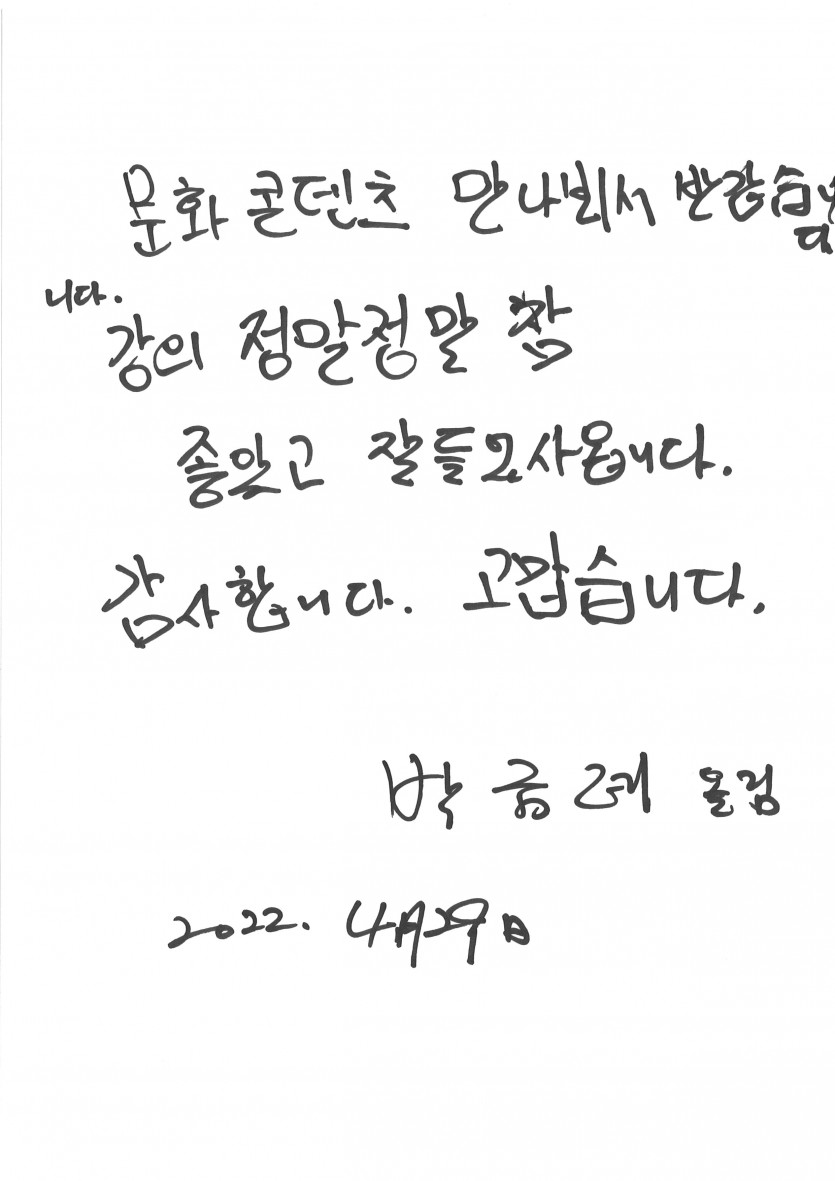 문화 콘텐츠 만나뵈서 반갑습니다
니다.
강의 정말정말 참
좋았고 잘들 사옵니다.
감사합니다. 고맙습니다.
박금례 올림
2022. 4月29日